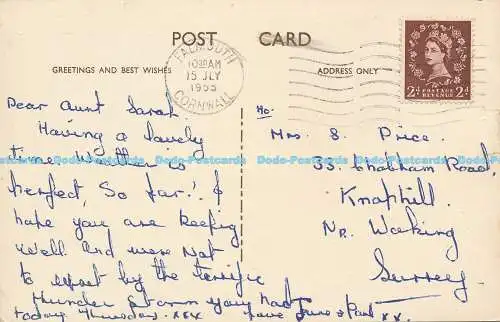 POST CARD
FALMOUTH
15 JLY
CORNWALL
GREETINGS AND BEST WISHES
ADDRESS ONLY
2D POSTAGE REVENUE 2D
Dear Aunt Sarah
Having a lovely
time Weather is
perfect, So far! &
hope you are keeping
well. and were not
to upset by the terrific
thunder storm you had
today Thursday. xxx
Love June & Pat xx.
To:
Mrs S. Price.
33. Chobham Road,
Knaphill.
Nr. Woking
Surrey
Dodo-Postcards Dodo-Postcards Dodo-Postcards Dodo-Postcards